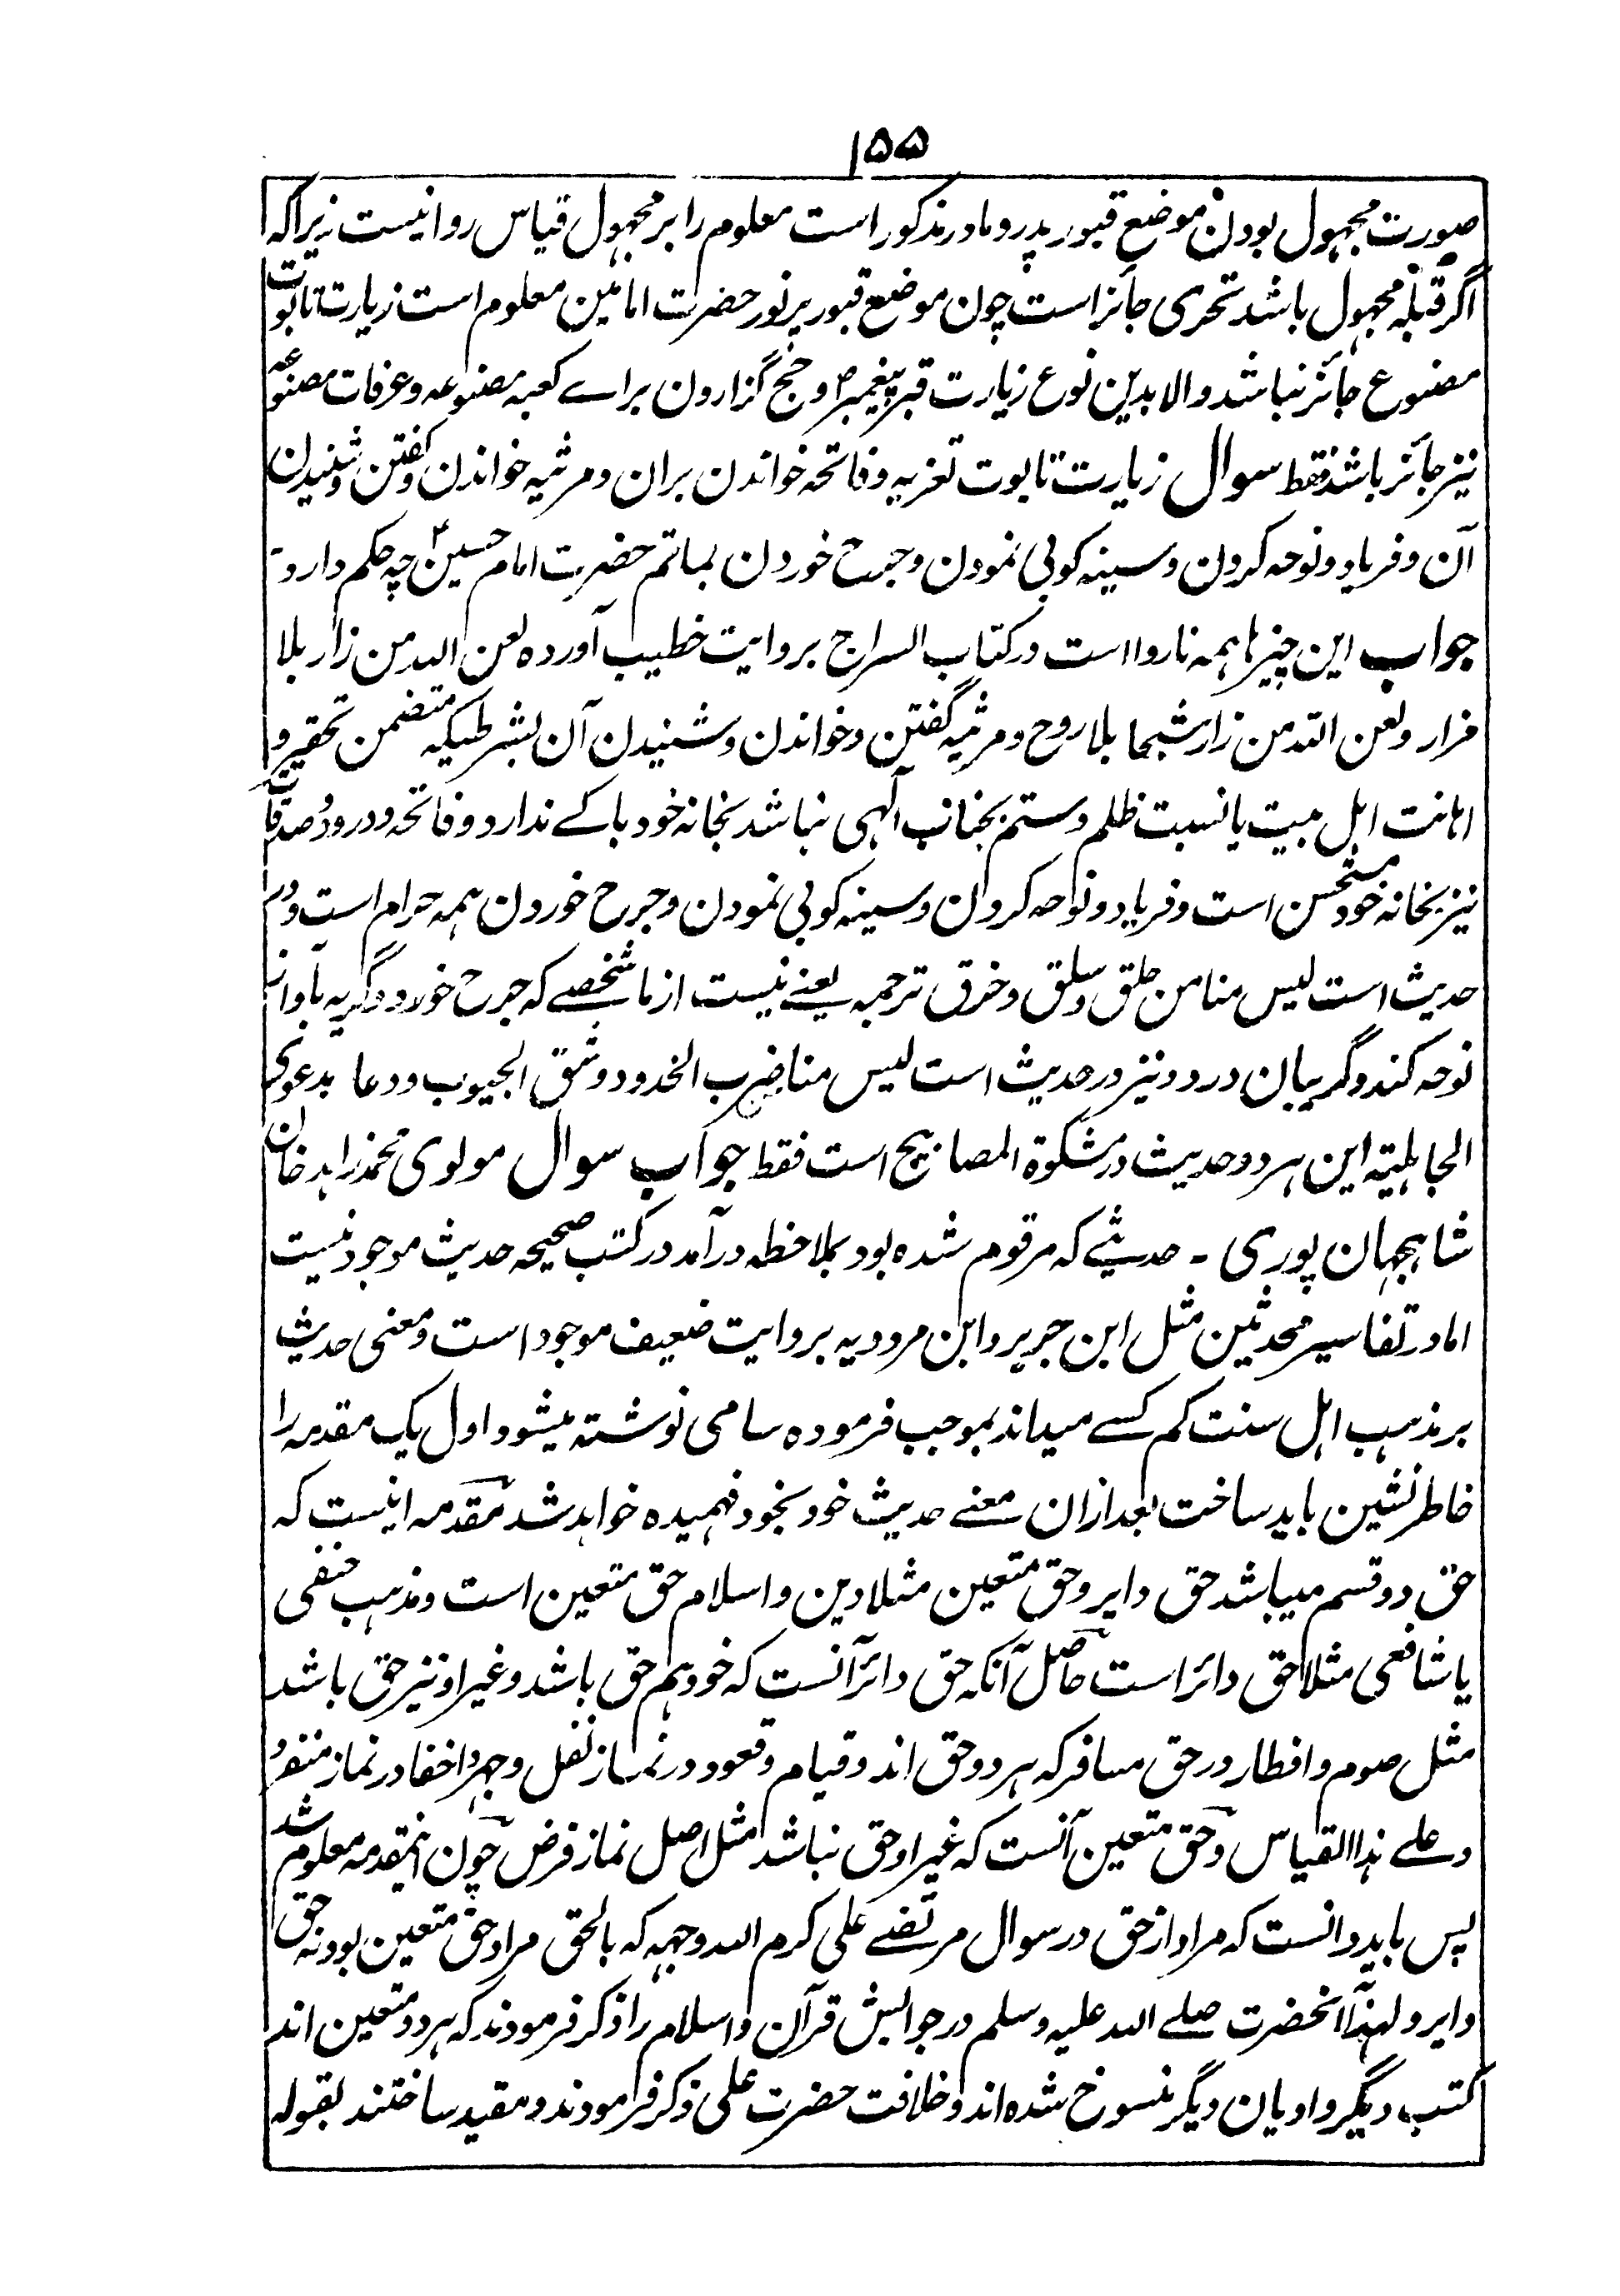 ۱۵۵
صورت مجہول بودن موضع قبور پدر و مادر مذکور است معلوم را بر مجہول قیاس روا نیست زیرا کہ
اگر قبلہ مجہول باشد تحری جائز است چون موضع قبور پر نور حضرت امامین معلوم است زیارت تابوت
مصنوع جائز نباشد والا بدین نوع زیارت قبر پیغمبر ؐ و حج گزاردن براے کعبہ مصنوعہ و عرفات مصنوعہ
نیز جائز باشد فقط سوال زیارت تابوت تعزیہ و فاتحہ خواندن بران و مرثیہ خواندن و گفتن و شنیدن
آن و فریاد و نوحہ کردن و سینہ کوبی نمودن و جرح خوردن بماتم حضرت امام حسین ؑ چہ حکم دارد -
جواب این چیزہا ہمہ ناروا است در کتاب السراج بروایت خطیب آوردہ لعن اللہ من زار بلا
مزار و لعن اللہ من زار شبحا بلا روح و مرثیہ گفتن و خواندن و شنیدن آن بشرطیکہ متضمن تحقیر و
اہانت اہل بیت یا نسبت ظلم و ستم بجناب الٰہی نباشد بخانہ خود باکے ندارد و فاتحہ و درود و صدقات
نیز بخانہ خود مستحسن است و فریاد و نوحہ کردن و سینہ کوبی نمودن و جرح خوردن ہمہ حرام است و در
حدیث است لیس منا من حلق و سلق و خرق ترجمہ یعنے نیست از ما شخصے کہ جرح خورد و گریہ بآواز
نوحہ کند و گریبان درد و نیز در حدیث است لیس منا ضرب الخدود و شق الجیوب و دعا بدعوی
الجاہلیتہ این ہر دو حدیث در مشکوۃ المصابیح است فقط جواب سوال مولوی محمد زاہد خان
شاہجہان پوری - حدیثے کہ مرقوم شدہ بود بملاحظہ در آمد در کتب صحیحہ حدیث موجود نیست
اما در تفاسیر محدثین مثل ابن جریر و ابن مردویہ بروایت ضعیف موجود است و معنی حدیث
بر مذہب اہل سنت کم کسے میداند بموجب فرمودہ سامی نوشتہ میشود اول یک مقدمہ را
خاطر نشین باید ساخت بعد ازان معنے حدیث خود بخود فہمیدہ خواہد شد مقدمہ اینست کہ
حق دو قسم میباشد حق دایر و حق متعین مثلا دین و اسلام حق متعین است و مذہب حنفی
یا شافعی مثلا حق دائر است حاصل آنکہ حق دائر آنست کہ خود ہم حق باشد و غیر او نیز حق باشد
مثل صوم و افطار در حق مسافر کہ ہر دو حق اند و قیام و قعود در نماز نفل و جہر و اخفا در نماز منفرد
و علے ہذا القیاس و حق متعین آنست کہ غیر او حق نباشد مثل اصل نماز فرض چون اینمقدمہ معلوم شد
پس باید دانست کہ مراد از حق در سوال مرتضے علی کرم اللہ وجہہ کہ بالحق مراد حق متعین بود نہ حق
دایر و لہذا آنحضرت صلے اللہ علیہ وسلم در جوابش قرآن و اسلام را ذکر فرمودند کہ ہر دو متعین اند
کتب دیگر و ادیان دیگر منسوخ شدہ اند و خلافت حضرت علی ذکر فرمودند و مقید ساختند بقولہ